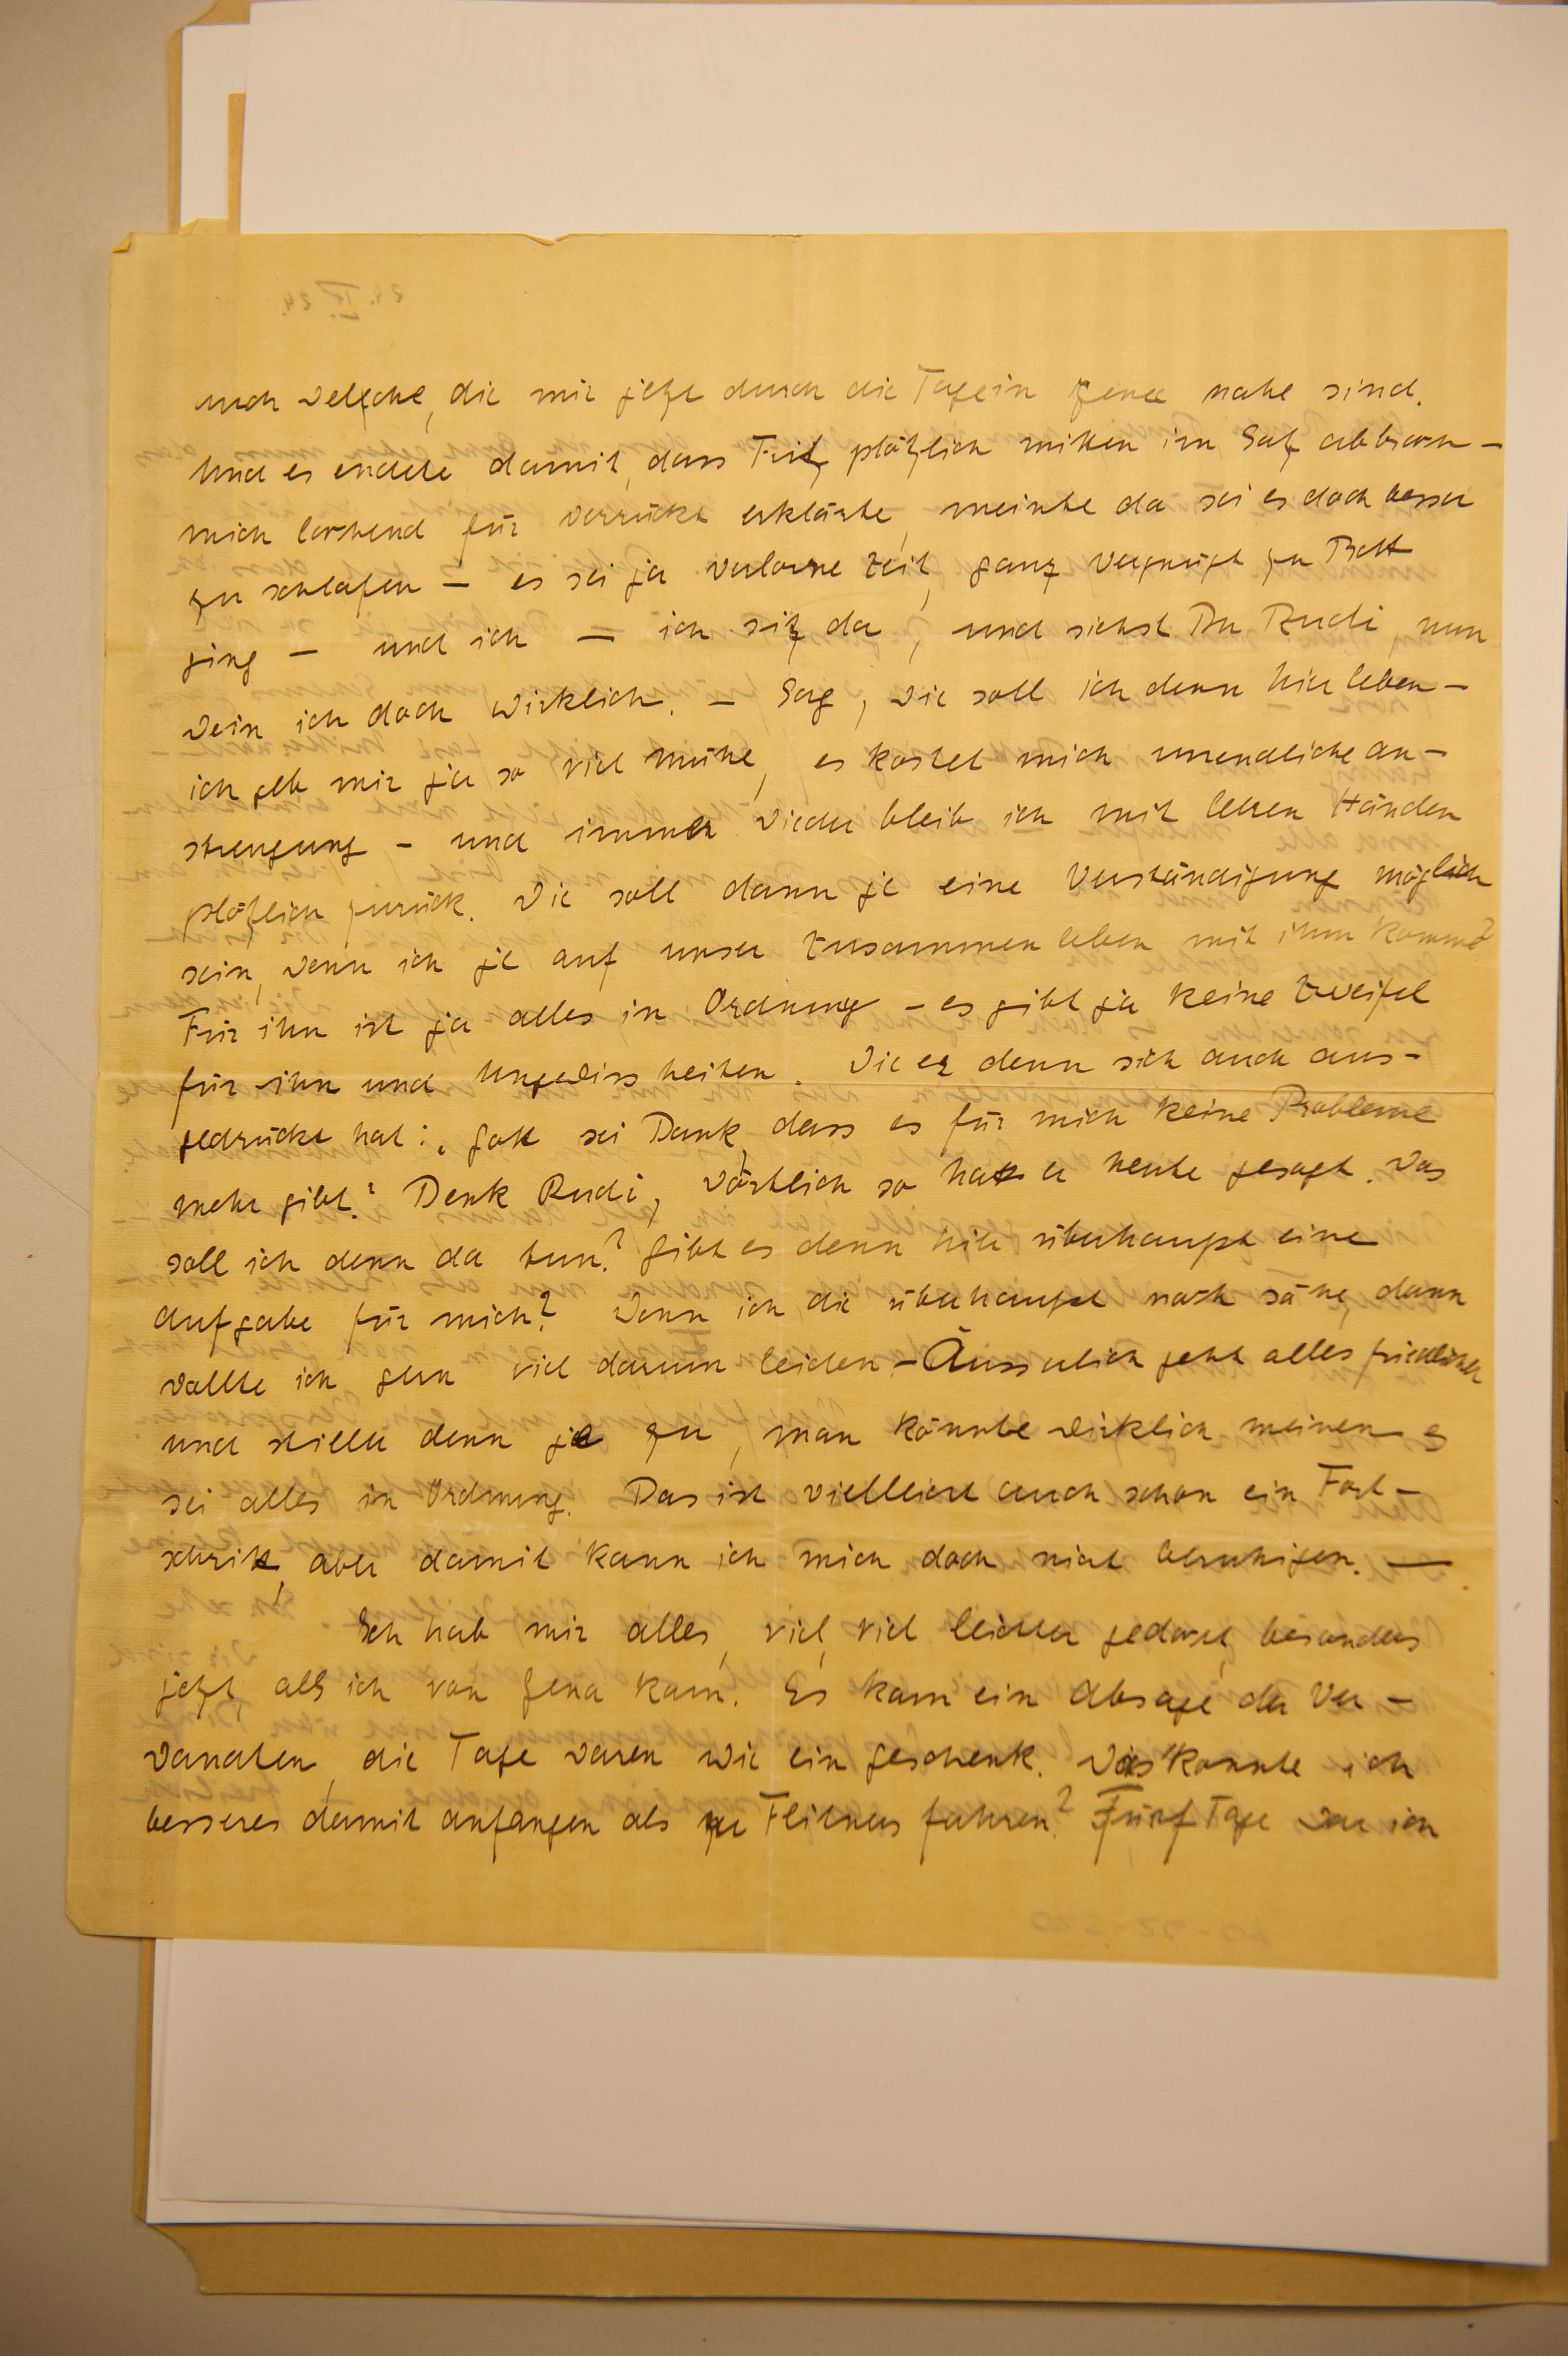 auch welche, die mir jetzt durch die Tage in Jena nahe sind.
Und es endete damit, dass Fritz plötzlich mitten im Satz abbrach –
mich lachend für verrückt erklärte, meinte da sei es doch besser
zu schlafen – es sei ja verlorne Zeit, ganz vergnügt zu Bett
ging – und ich – ich sitz da, und siehst Du Rudi, nun
wein ich doch wirklich. – Sag, wie soll ich denn hier leben –
ich geb mir ja so viel Mühe, es kostet mich unendliche An-
strengung – und immer wieder bleib ich mit leeren Händen
plötzlich zurück. Wie soll dann je eine Verständigung möglich
sein, wenn ich je auf unser Zusammenleben mit ihm komme?
Für ihn ist ja alles in Ordnung – es gibt ja keine Zweifel
für ihn und Ungewissheiten. Wie er denn sich auch aus-
gedrückt hat: „Gott sei Dank, dass es für mich keine Probleme
mehr gibt." Denk Rudi, wörtlich so hat er heute gesagt. Was
soll ich denn da tun? Gibt es denn hier überhaupt eine
Aufgabe für mich? Wenn ich die überhaupt noch sähe, dann
wollte ich gern viel darum leiden. – Äusserlich geht alles friedlicher
und stiller denn je zu, man könnte wirklich meinen es
sei alles in Ordnung. Das ist vielleicht auch schon ein Fort-
schritt, aber damit kann ich mich doch nicht beruhigen. —
Ich hab mir alles, viel, viel leichter gedacht, besonders
jetzt, als ich von Jena kam. Es kam ein Absage der Ver-
wandten, die Tage waren wie ein Geschenk. Was konnte ich
besseres damit anfangen als zu Flitners fahren? Fünf Tage war ich